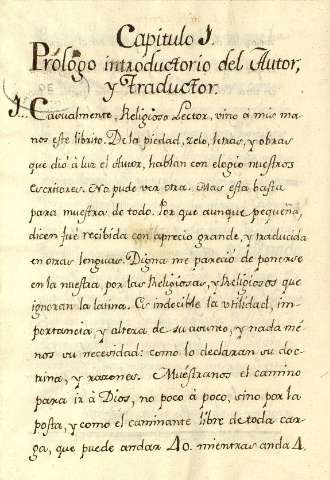 Capitulo 1.
Prólogo introductorio del Autor,
y Traductor.
1.. Casualmente, Religioso Lector, vino á mis ma
nos este librito. De la piedad, zelo, letras, y obras
que dió á luz el Autor, hablan con elogio nuestros
Escritores. No pude ver otra. Mas esta basta
para muestra de todo. Por que aunque pequeña,
dicen fué recibida con aprecio grande, y traducida
en otras lenguas. Digna me pareció de ponerse
en la nuestra, por las Religiosas, y Religiosos que
ignoran la latina. Es indecible la utilidad, im-
portancia y alteza de su asunto, y nada mé-
nos su necesidad: como lo declaran su doc-
trina, y razones. Muéstranos el camino
para ir à Dios, no poco à poco, sino por la
posta, y como el caminante libre de toda car-
ga, que puede andar 40. mientras anda 4.